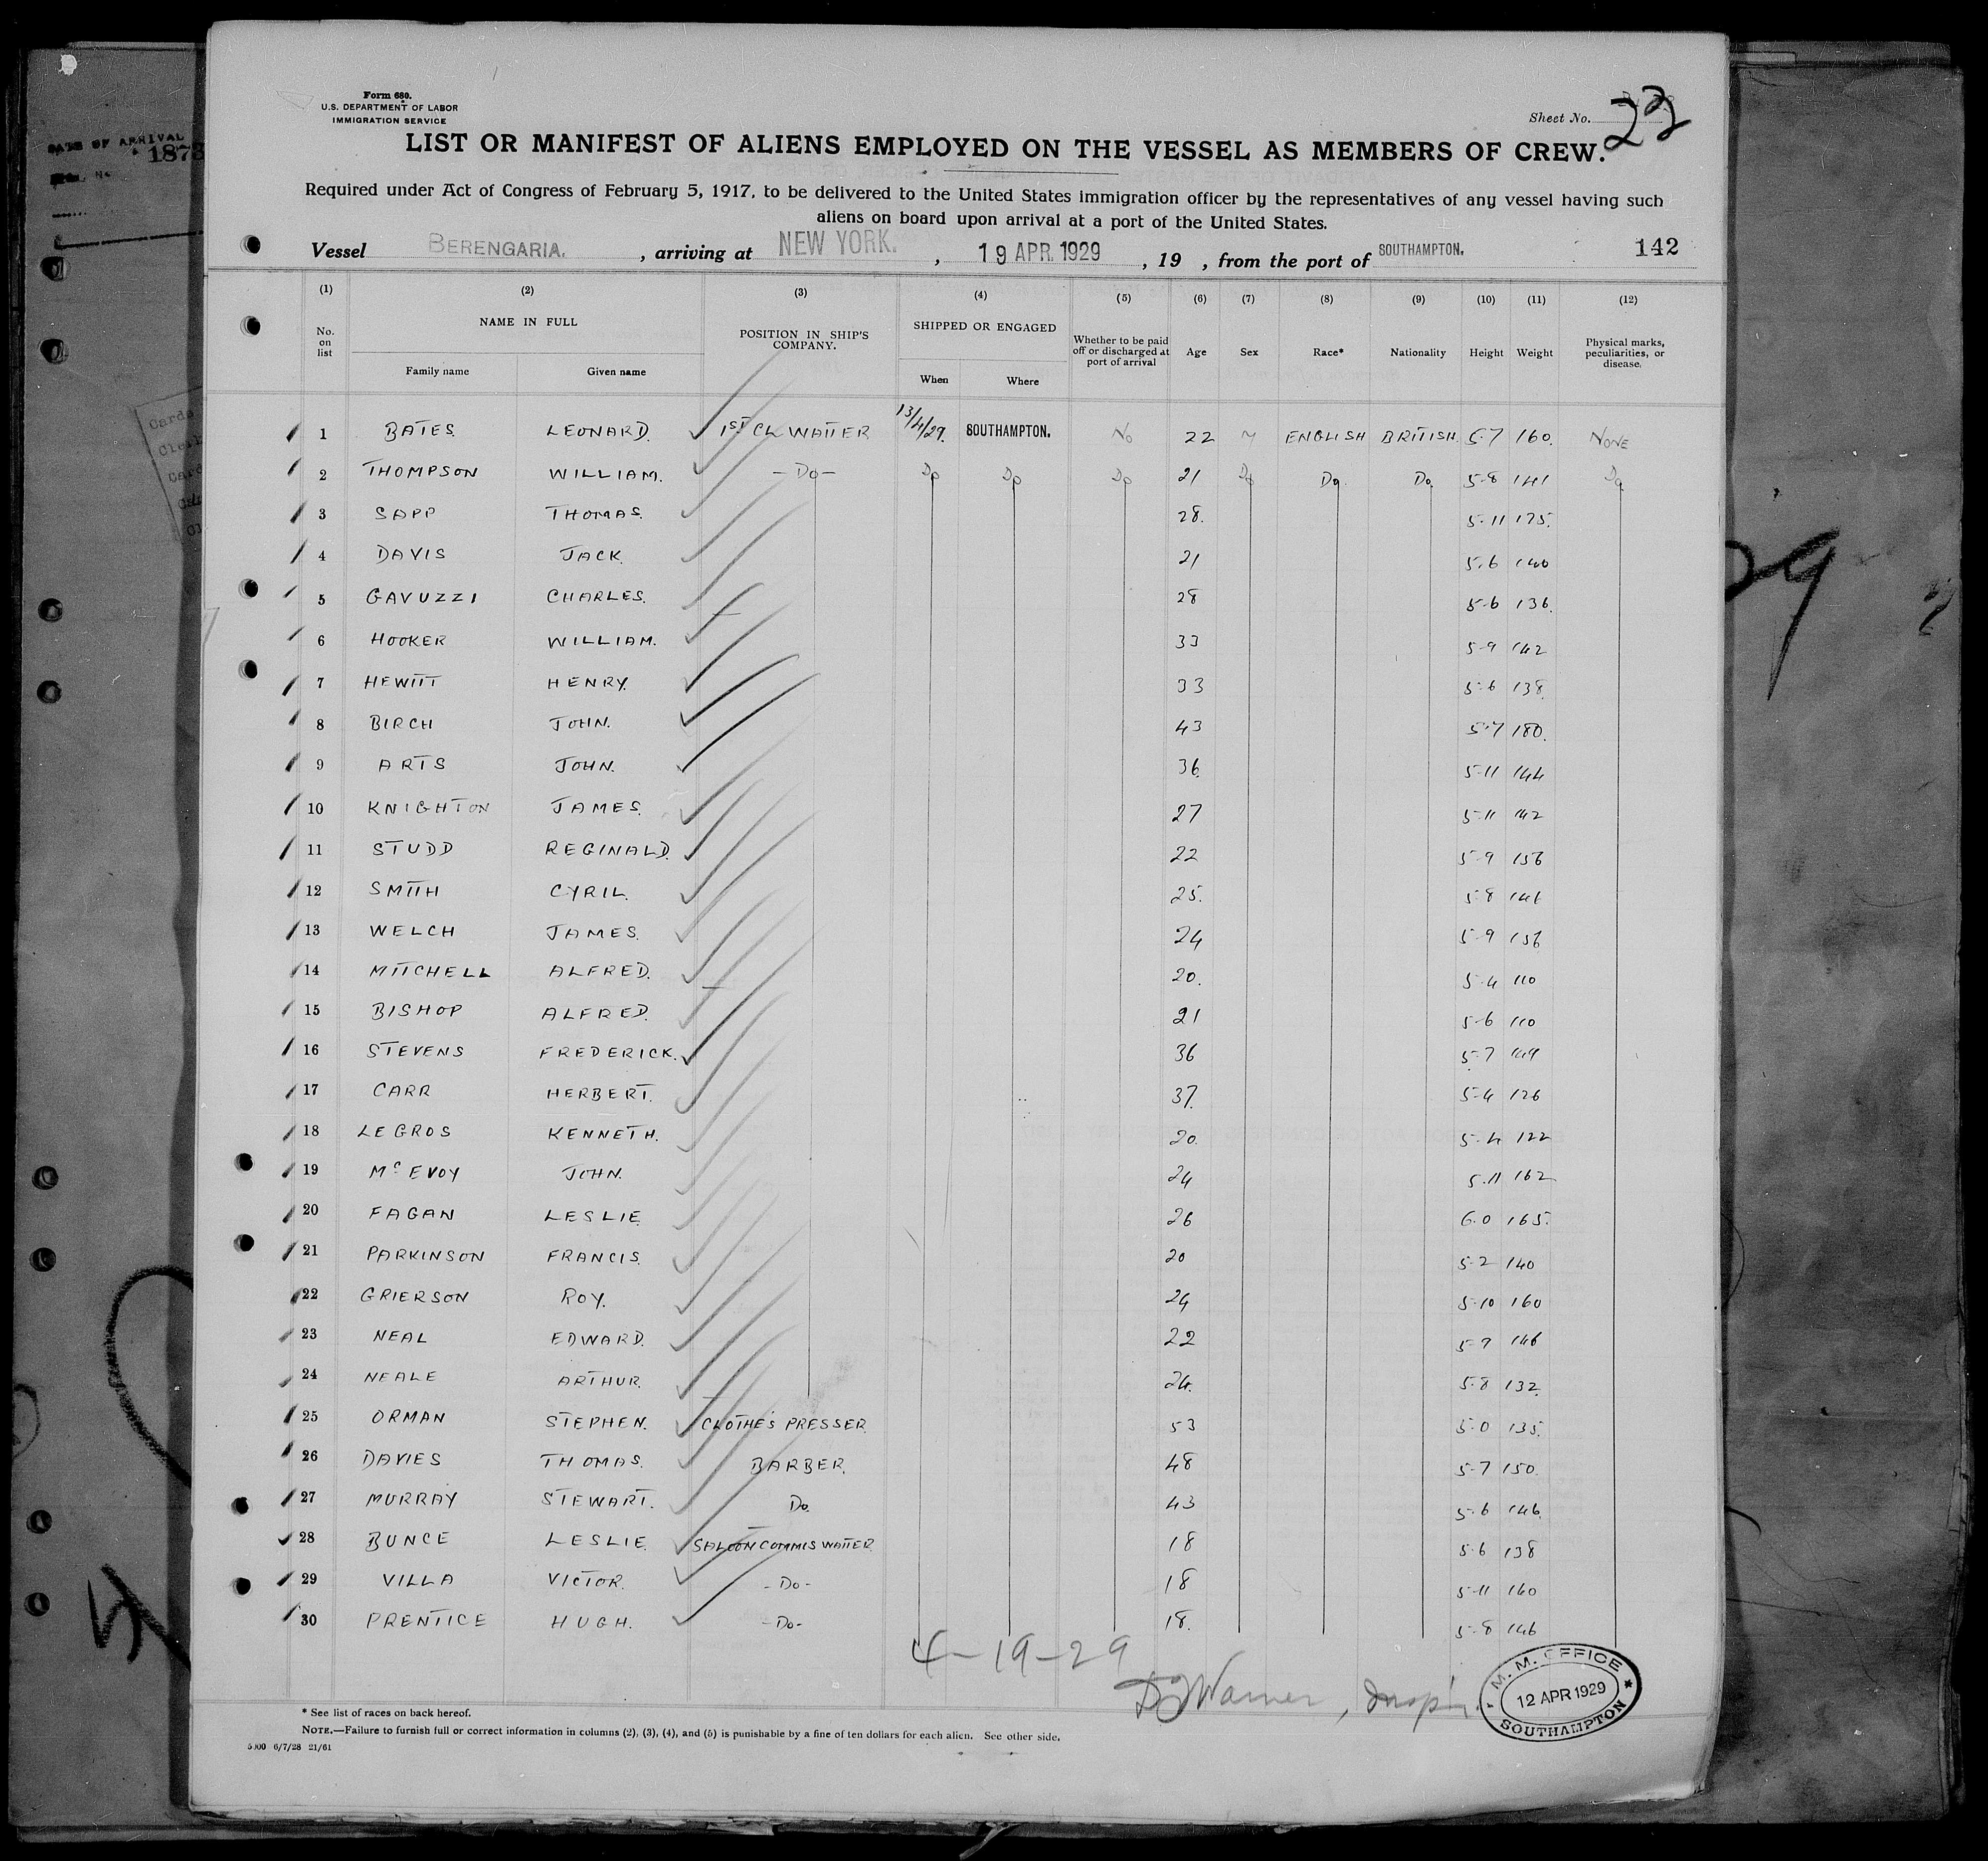 Form 680.
U.S. DEPARTMENT OF LABOR
IMMIGRATION SERVICE
Sheet No. 22
LIST OR MANIFEST OF ALIENS EMPLOYED ON THE VESSEL AS MEMBERS OF CREW.
Required under Act of Congress of February 5, 1917, to be delivered to the United States immigration officer by the representatives of any vessel having such
aliens on board upon arrival at a port of the United States.
Vessel BERENGARIA. , arriving at NEW YORK. , 19 APR. 1929 , 19 , from the port of SOUTHAMPTON. 142
(1) (2) (3) (4) (5) (6) (7) (8) (9) (10) (11) (12)
No. on list NAME IN FULL Family name Given name POSITION IN SHIP'S COMPANY. SHIPPED OR ENGAGED When Where Whether to be paid off or discharged at port of arrival Age Sex Race* Nationality Height Weight Physical marks, peculiarities, or disease.
1 BATES. LEONARD. 1ST CL WAITER 13/4/29. SOUTHAMPTON. No 22 M ENGLISH BRITISH. 5-7 160. NONE
2 THOMPSON WILLIAM. -Do- Do Do Do 21 Do Do Do. 5-8 141 Do
3 SAPP THOMAS. 28. 5-11 175.
4 DAVIS JACK. 21 5-6 140
5 GAVUZZI CHARLES. 28 5-6 136.
6 HOOKER WILLIAM. 33 5-9 142
7 HEWITT HENRY. 33 5-6 138.
8 BIRCH JOHN. 43 5-7 180.
9 ARTS JOHN. 36. 5-11 144
10 KNIGHTON JAMES. 27 5-11 142
11 STUDD REGINALD. 22 5-9 156
12 SMITH CYRIL. 25. 5-8 146
13 WELCH JAMES. 24 5-9 156
14 MITCHELL ALFRED. 20. 5-4 110
15 BISHOP ALFRED. 21 5-6 110
16 STEVENS FREDERICK. 36 5-7 149
17 CARR HERBERT. 37. 5-4 126
18 LE GROS KENNETH. 20. 5-4 122
19 McEVOY JOHN. 24 5-11 162
20 FAGAN LESLIE 26 6.0 165.
21 PARKINSON FRANCIS. 20 5-2 140
22 GRIERSON ROY. 24 5-10 160
23 NEAL EDWARD. 22 5-9 146
24 NEALE ARTHUR. 24. 5-8 132.
25 ORMAN STEPHEN. CLOTHES PRESSER. 53 5-0 135.
26 DAVIES THOMAS. BARBER. 48 5-7 150.
27 MURRAY STEWART. Do. 43 5-6 146.
28 BUNCE LESLIE. SALOON COMMIS WAITER. 18 5-6 138
29 VILLA VICTOR. -Do- 18 5-11 160
30 PRENTICE HUGH. -Do- 18. 5-8 146
4-19-29
Warner, Insp'r.
M. M. OFFICE
12 APR 1929
SOUTHAMPTON
* See list of races on back hereof.
NOTE.—Failure to furnish full or correct information in columns (2), (3), (4), and (5) is punishable by a fine of ten dollars for each alien. See other side.
5000 6/7/28 21/61
DATE OF ARRIVAL
1873